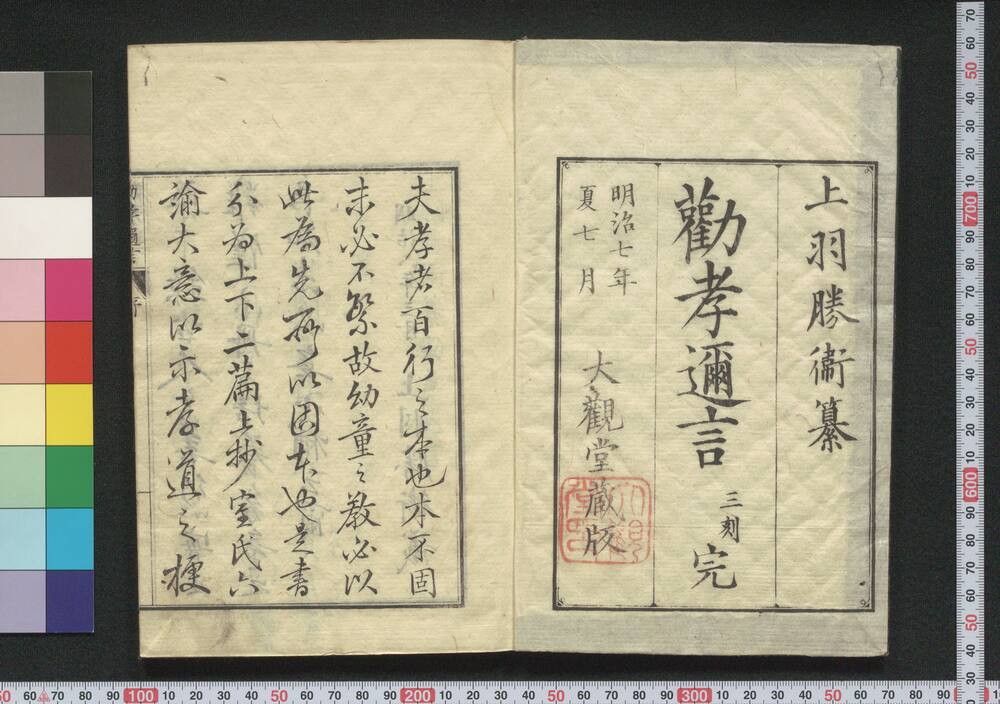 上羽勝衞纂
勸孝邇言
三刻
完
明治七年
夏七月
大觀堂藏版
夫孝者百行之本也本不固
末必不繁故幼童之教必以
此為先所以固本也是書
分為上下二篇上抄室氏六
諭大意以示孝道之梗